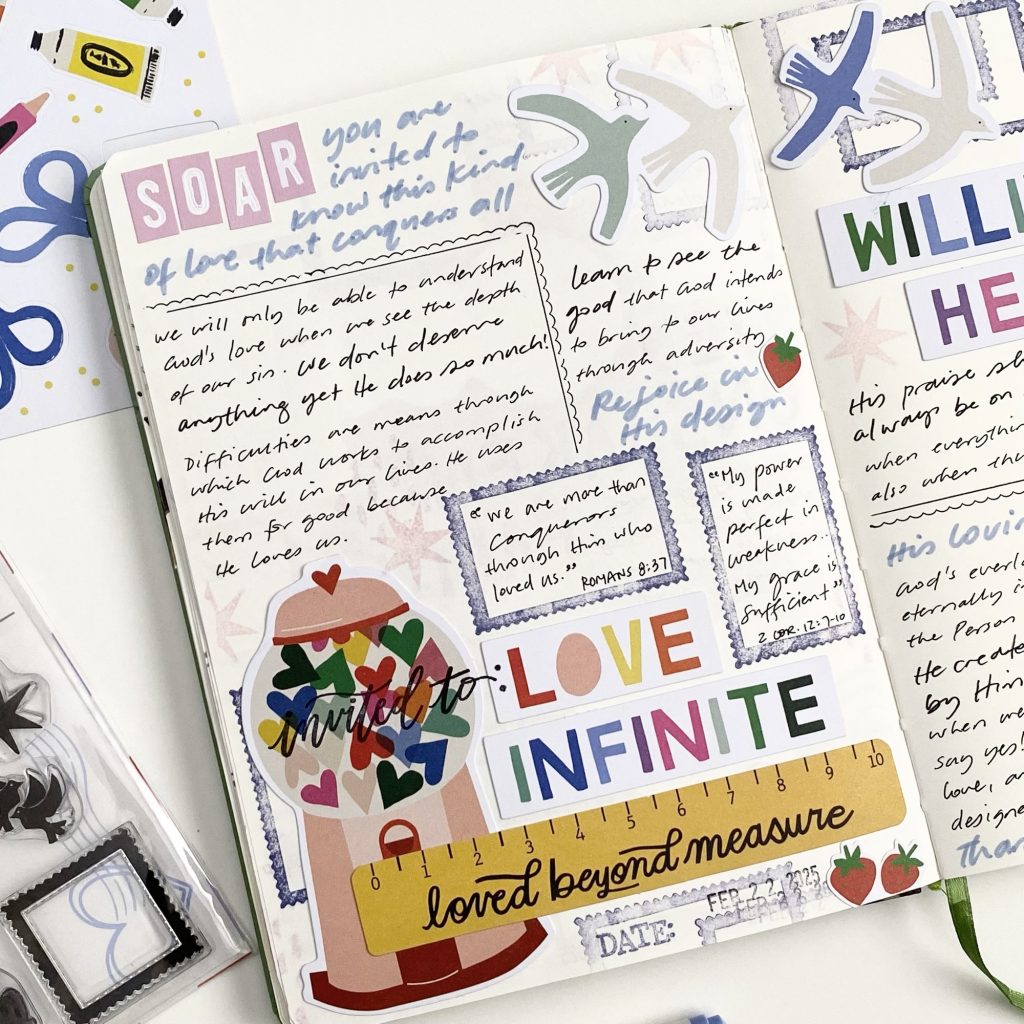 SOAR
you are
invited to
know this kind
of love that conquers all
we will only be able to understand
God's love when we see the depth
of our sin. We don't deserve
anything yet He does so much!
Difficulties are means through
which God works to accomplish
His will in our lives. He uses
them for good because
He loves us.
learn to see the
good that God intends
to bring to our lives
through adversity
Rejoice in
His design
"We are more than
conquerors
through Him who
loved us."
ROMANS 8:37
"My power
is made
perfect in
weakness...
My grace is
sufficient"
2 COR. 12:7-10
invited to
:LOVE
INFINITE
0 1 2 3 4 5 6 7 8 9 10
loved beyond measure
FEB 22 2025
DATE:
WILLI
HE
His praise
always be on
when everythin
also when th
His lovin
God's everl
eternally i
the Person
He create
by Him
when we
say yes!
love, a
designe
Than